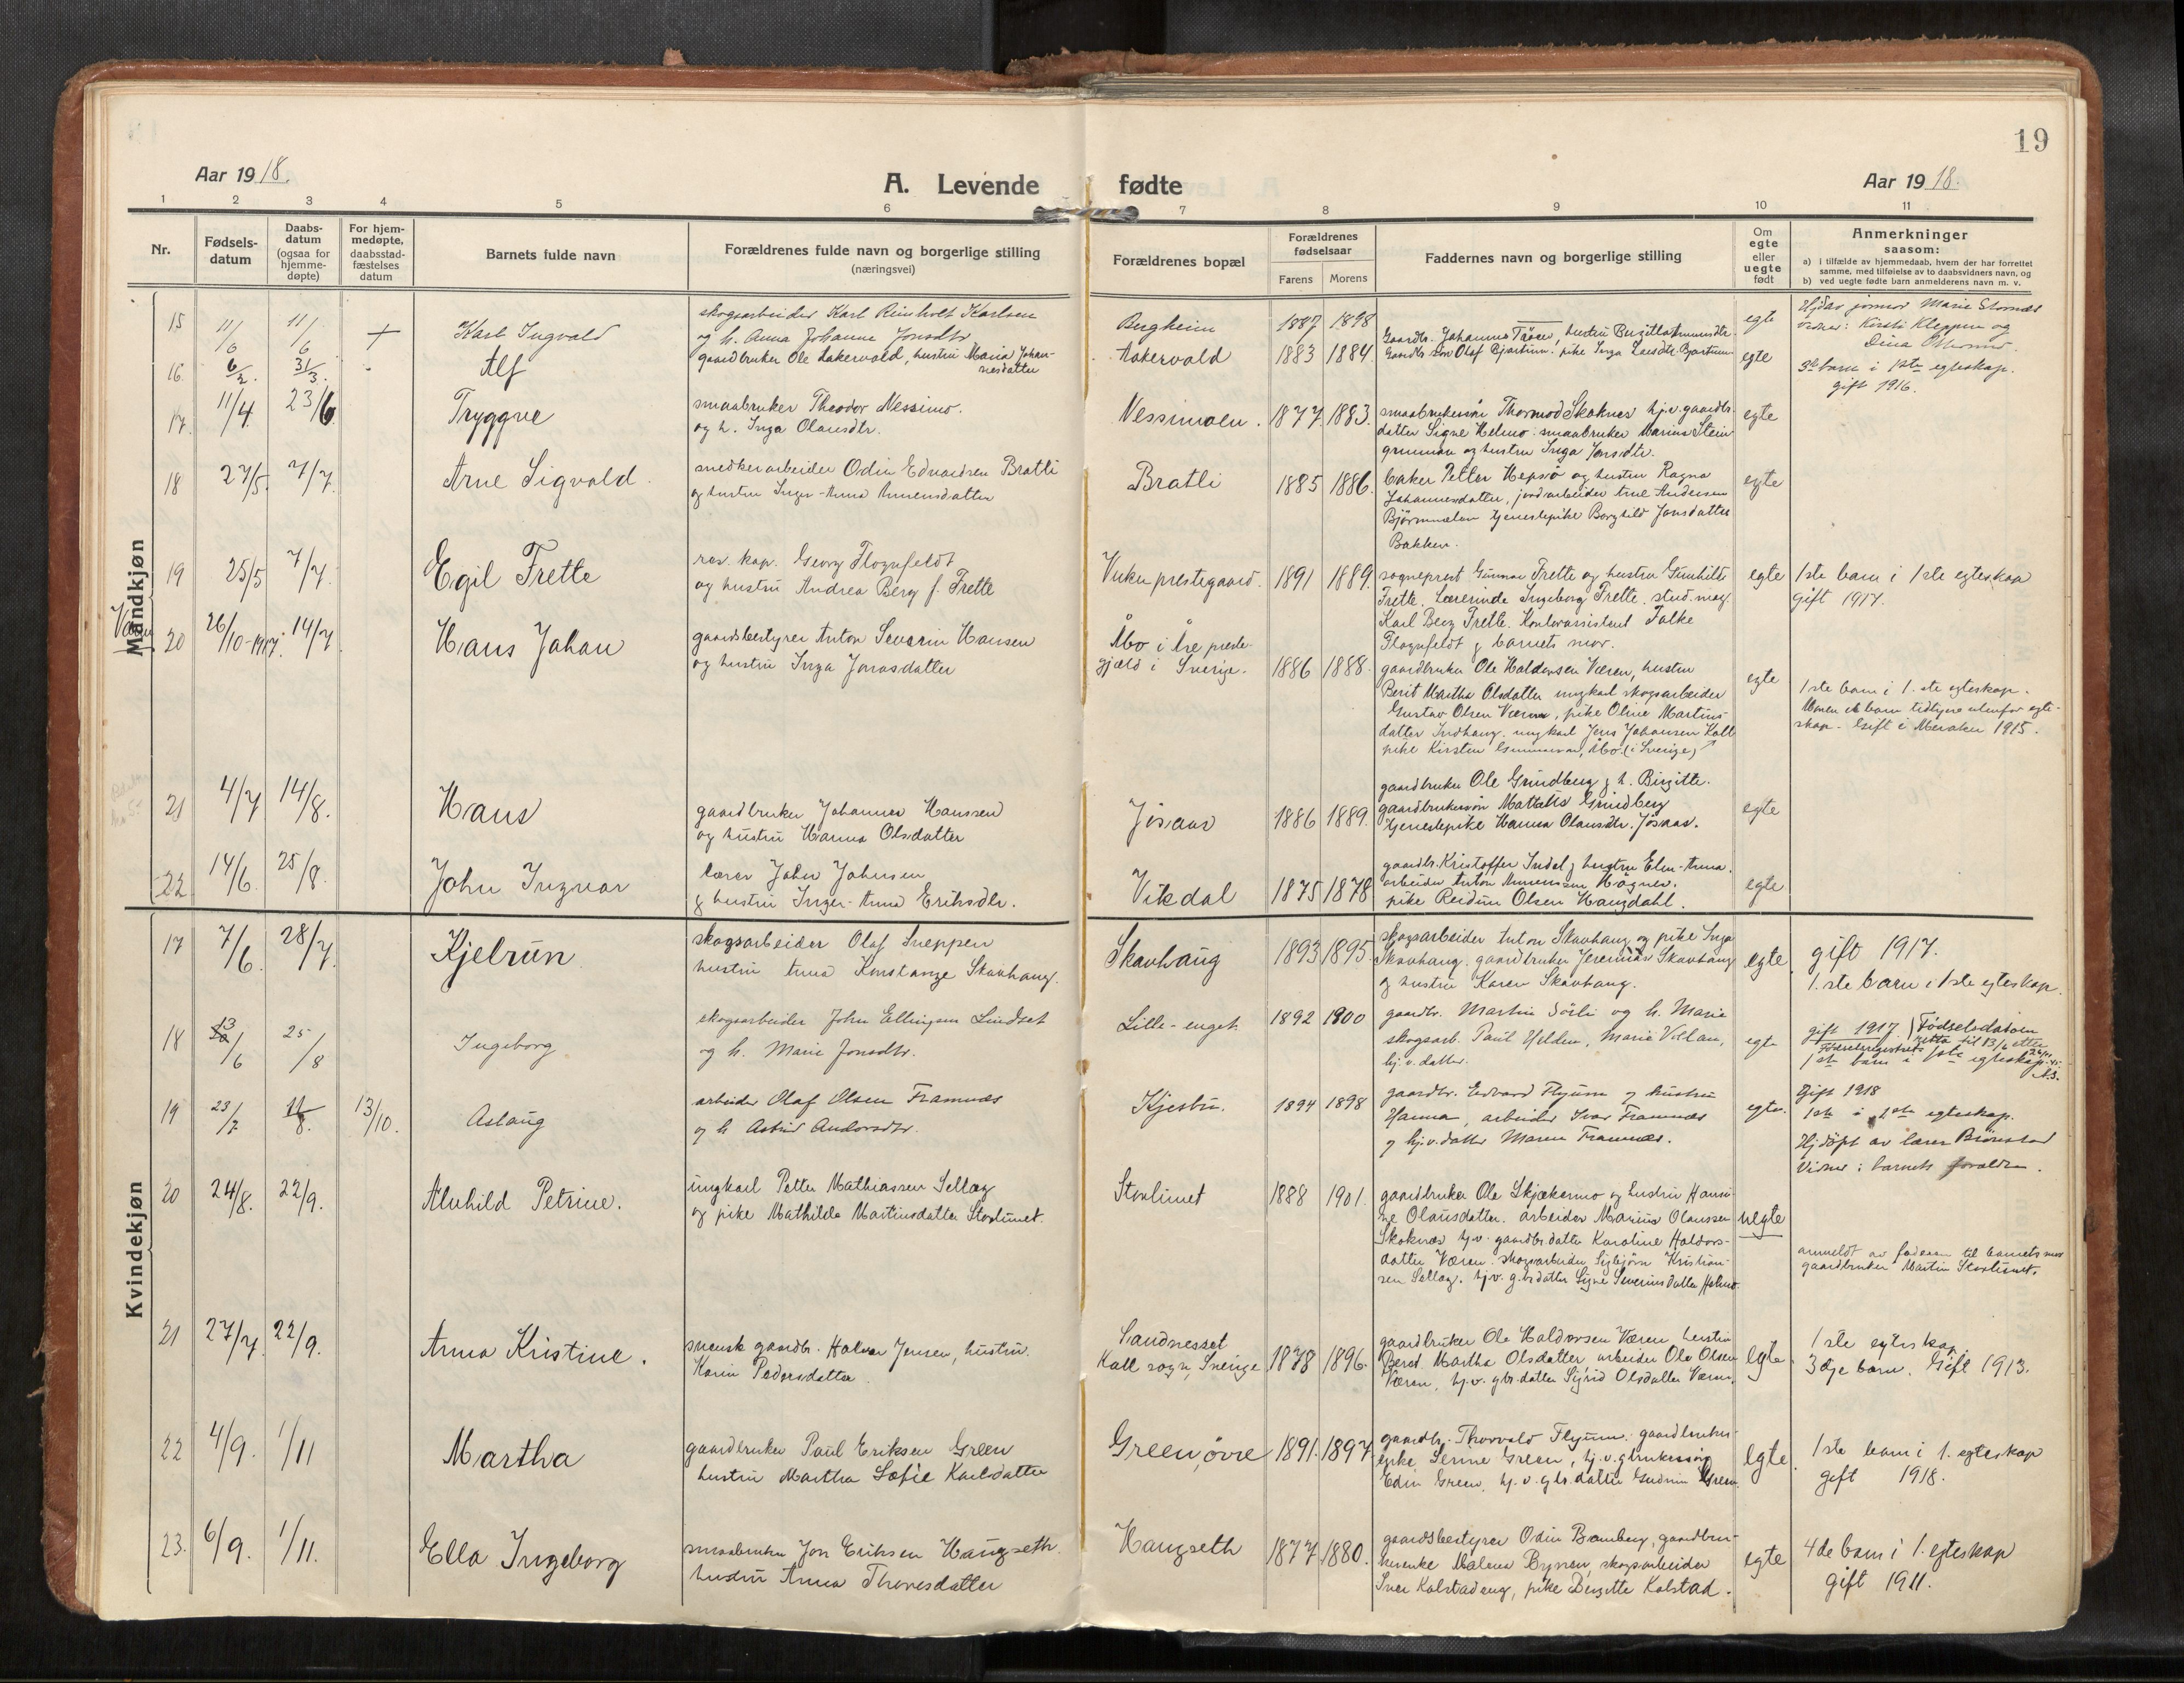 19
Aar 1918.
A. Levende fødte
Aar 1918.
1 2 3 4 5 6 7 8 9 10 11
Nr.
Fødsels-
datum
Daabs-
datum
(ogsaa for
hjemme-
døpte)
For hjem-
medøpte,
daabsstad-
fæstelses
datum
Barnets fulde navn
Forældrenes fulde navn og borgerlige stilling
(næringsvei)
Forældrenes bopæl
Forældrenes
fødselsaar
Farens Morens
Faddernes navn og borgerlige stilling
Om
egte
eller
uegte
født
Anmerkninger
saasom:
a) i tilfælde av hjemmedaab, hvem der har forrettet
samme, med tilføielse av to daabsvidners navn, og
b) ved uegte fødte barn anmelderens navn m. v.
Mandkjøn
15 11/6 11/6 + Karl Ingvald
skogsarbeider Karl Reinholt Karlsen
og h. Anna Johanne Jonsdtr
Bergheim 1887 1898
Gaardbr. Johannes Trøen, hustru
egte
Hjdøv jormor Marie Stornæs
Kirsti Kleppen og
16 6/2. 31/3. - Alf
gaardbruker Ole Aakervold, hustru Maria Johan-
nesdatter
Aakervold 1883 1884.
egte
3de barn i 1ste egteskap.
gift 1916.
17. 11/4. 23/6 Tryggve
smaabruker Theodor Nessimo.
og h. Inga Olausdtr.
Nessimoen. 1877. 1883.
smaabrukersøn Thormod Skoknes hj.v. gaardbr.
datter Signe Helmo. smaabruker Marius Stein
grunnan og hustru Inga Jonsdtr.
egte
18 27/5. 7/7. Arne Sigvald.
snedkerarbeider Odin Edvardsen Bratli
og hustru Inger-Anna Annensdatter
Bratli 1885 1886.
baker Petter Hepsø og hustru Ragna
Johannesdatter, jordarbeider Arne Andersen
Bjørnmælen tjenestepike Borghild Jonsdatter
Bakken.
egte
19 25/5 7/7. Egil Frette
res. kap. Georg Flognfeldt
og hustru Andrea Berg f. Frette
Vuku prestegaard. 1891 1889.
sogneprest Gunnar Frette og hustru Gunhild
Frette. Lærerinde Ingeborg Frette. stud. mag.
Karl Berg Frette. Kontorassistent Falke
Flognfeldt & barnets mor.
egte
1ste barn i 1ste egteskap
gift 1917.
20 26/10-1917. 14/7. Hans Johan
gaardsbestyrer Anton Severin Hansen
og hustru Inga Jonasdatter
Åbo i Åre preste-
gjeld i Sverige. 1886 1888.
gaardbruker Ole Haldorsen Væren, hustru
Berit Martha Olsdatter ungkarl skogsarbeider
Gustav Olsen Væren, pike Oline Martins-
datter Indhaug. ungkarl Jens Johansen Kall
pike Kirsten Gunnarsen, Åbo. (i Sverige)
egte
1ste barn i 1.ste egteskap.
Moren et barn tidligere utenfor egte-
skap. Gift i Meraker 1915.
21 4/7 14/8. Hans
gaardbruker Johannes Hanssen
og hustru Hanna Olsdatter
Jösaas 1886 1889.
gaardbruker Ole Grundberg & h. Birgitte.
gaardbrukersøn Mathias Grundberg
tjenestepike Hanna Olausdtr. Jösaas.
egte
22 14/6. 25/8. John Ingvar
lærer John Johnsen
& hustru Inger-Anna Eriksdtr.
Vikdal 1875 1878
gaardbr. Kristoffer Indal & hustru Elen-Anna.
arbeider Anton Annensen Hognes.
pike Reidun Olsen Haugdahl.
egte
Kvindekjøn
17 7/6. 28/7. Kjelrun
skogsarbeider Olaf Sneppen
hustru Anna Konstanze Skavhaug.
Skavhaug 1893 1895.
skogsarbeider Anton Skavhaug og pike Inga
Skavhaug. gaardbruker Jeremias Skavhaug
og hustru Karen Skavhaug.
egte.
gift 1917.
1.ste barn i 1ste egteskap.
18 13/6 25/8 Ingeborg
skogsarbeider John Ellingsen Lindset
og h. Marie Jonsdtr.
Lille-enget 1892 1900
gaardbr. Martin Sörli og h. Marie
skogsarb. Paul Helden, Marie
hj.v. datter.
egte
gift 1917. Fødselsdatoen
rettet til 13/6 etter
Fødselsregistret
1ste barn i 1ste egteskap.
19 23/7 11/8. 13/10. Aslaug
arbeider Olaf Olsen Framnæs
og h Astrid Andorsdtr.
Kjestu. 1894 1898
gaardbr. Edvard Flyum og hustru
Hanna, arbeider Ivar Framnæs
og hj.v.datter Maren Framnæs.
egte.
Gift 1918
1ste i 1ste egteskap.
Hjdöpt av lærer Björnstad
Vidner: barnets forældre.
20 24/8. 22/9. Alvhild Petrine.
ungkarl Petter Mathiassen Sellæg
og pike Mathilde Martinsdatter Storlunet.
Storlunet 1888 1901.
gaardbruker Ole Skjækermo og hustru Hansi-
ne Olausdatter. arbeider Marius Olaussen
Skoknæs hj.v. gaardbr.datter Karoline Haldors-
datter Væren. skogsarbeider Sigbjørn Kristian-
sen Sellæg. hj.v. g.br.datter Signe Severinsdatter Helmo.
uegte
anmeldt av faderen til barnets mor
gaardbruker Martin Storlunet.
21 27/7. 22/9. Anna Kristine.
svensk gaardbr. Halvar Jensen, hustru.
Karin Pedersdatter.
Sandnesset
Kall sogn, Sverige 1878 1896.
gaardbruker Ole Haldorsen Væren hustru
Berit Martha Olsdatter, arbeider Ole Olsen
Væren, hj.v. gbr.datter Sigrid Olsdatter Væren.
egte.
1ste egteskap.
3dje barn. Gift 1913.
22 4/9. 1/11 Martha
gaardbruker Paul Eriksen Green
hustru Martha Sofie Karlsdatter
Green, övre 1891. 1897
gaardbr. Thorvald Flyum. gaardbruker-
enke Serine Green, hj.v. gbrukersøn
Edin Green, hj.v. gbr.datter Gudrun Green.
egte.
1ste barn i 1. egteskap
gift 1918.
23. 6/9. 1/11. Ella Ingeborg
smaabruker Jon Eriksen Haugseth.
hustru Anna Thoresdatter
Haugseth 1877 1880.
gaardsbestyrer Odin Bamberg, gaardbru-
kerenke Malena Byvron, skogsarbeider
Iver Kolstadeng, pike Birgitte Kolstad.
egte
4de barn i 1. egteskap
gift 1911.